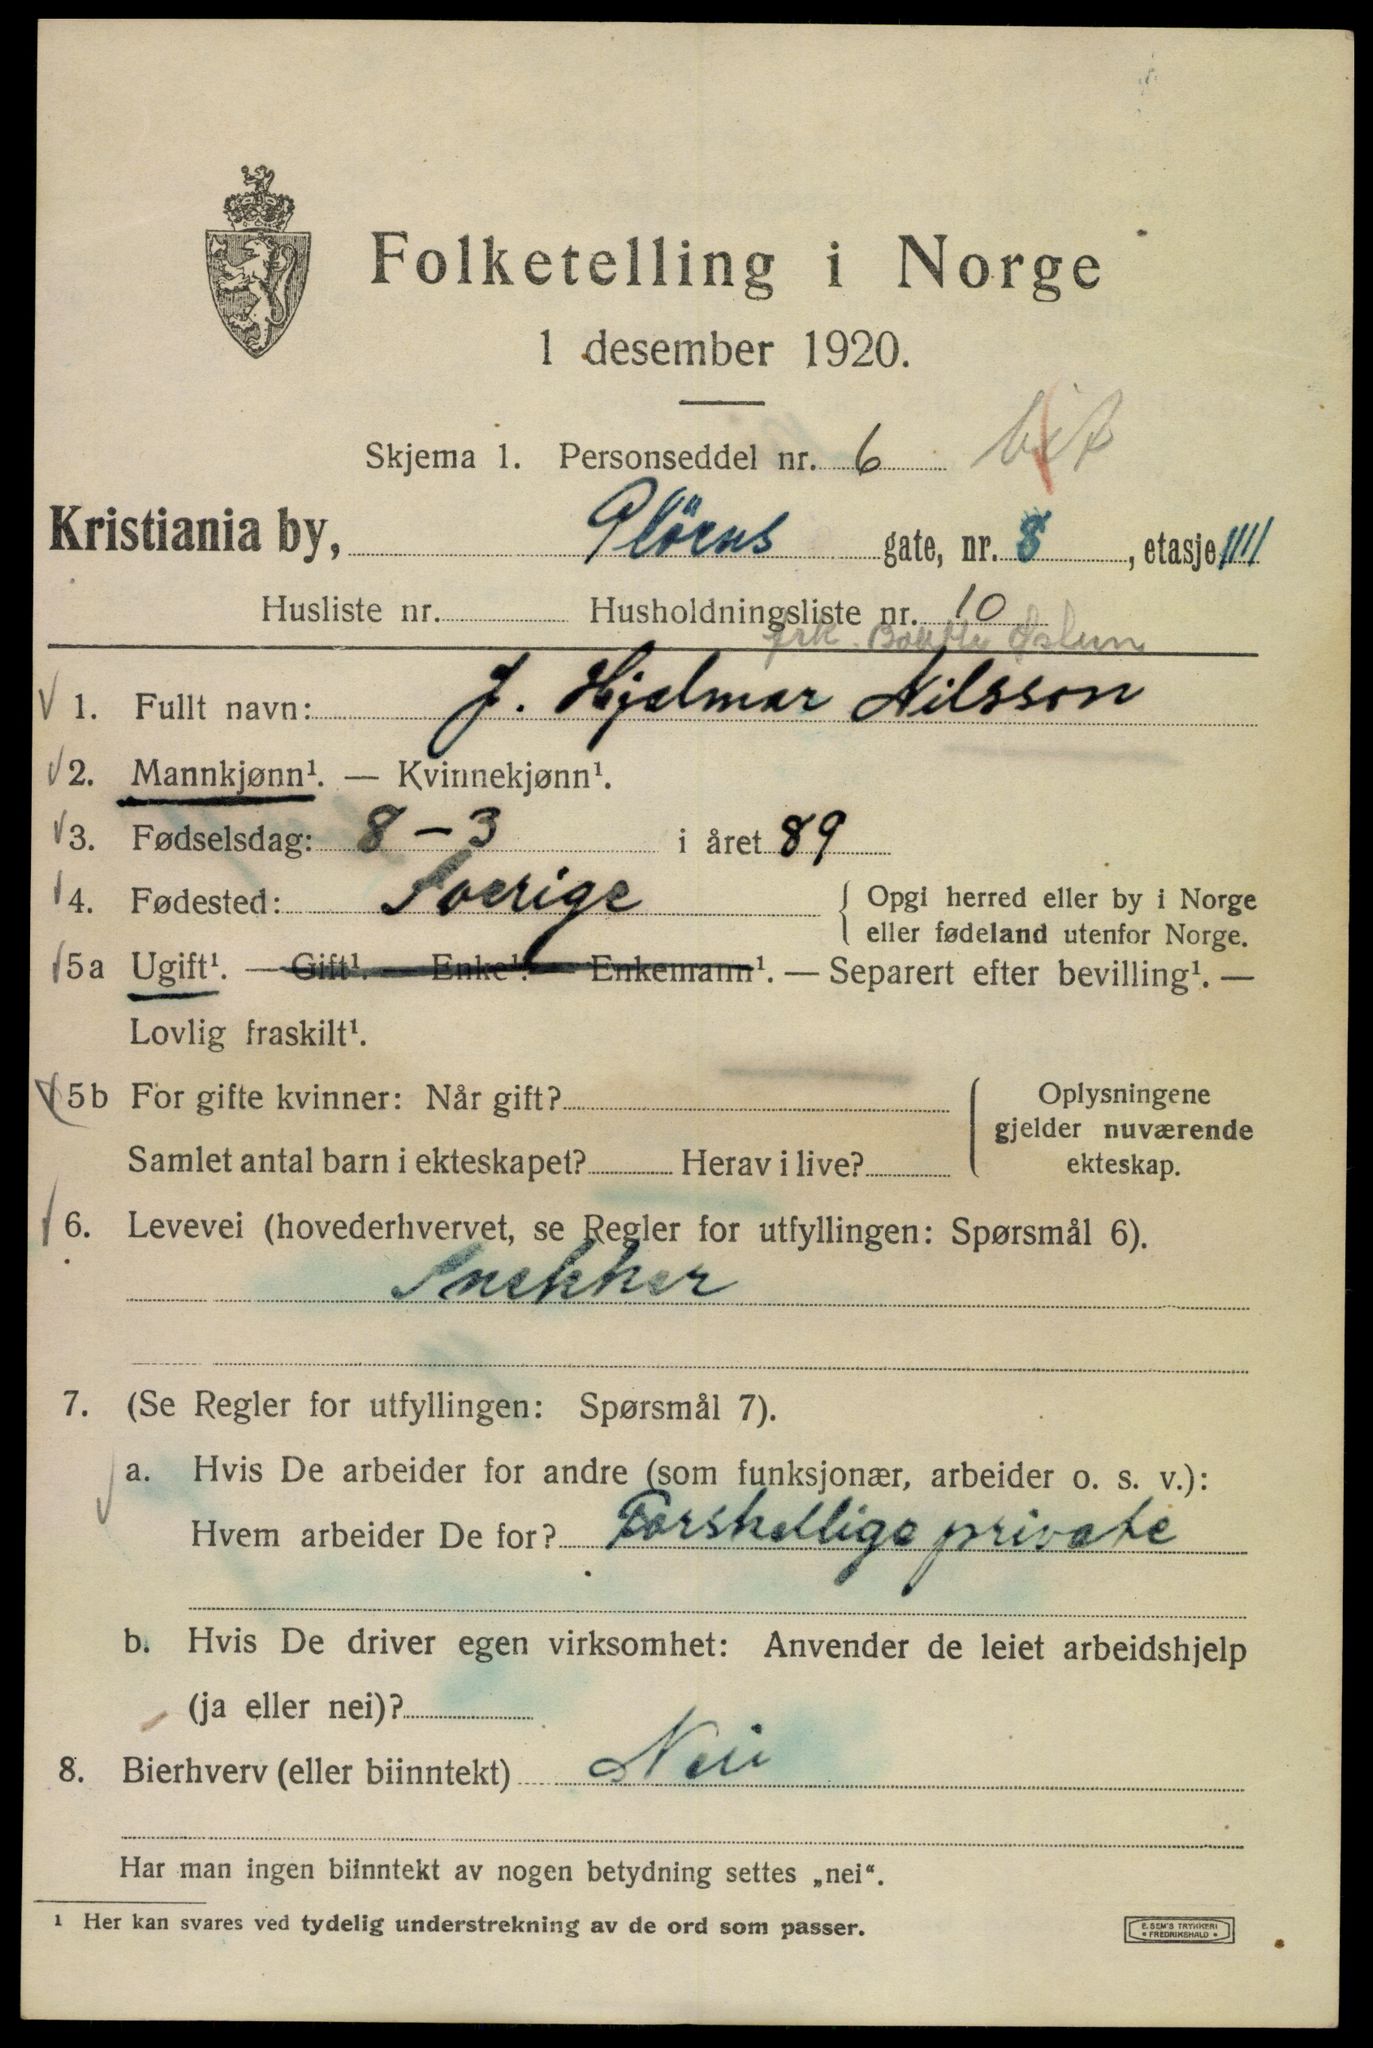 Folketelling i Norge
1 desember 1920.
Skjema 1. Personseddel nr. 6
Kristiania by, gate, nr. 8, etasje IIII
Husliste nr. Husholdningsliste nr. 10
1. Fullt navn: J. Hjalmar Nilsson
2. Mannkjønn¹. — Kvinnekjønn¹.
3. Fødselsdag: 8-3 i året 89
4. Fødested: Sverige { Opgi herred eller by i Norge
eller fødeland utenfor Norge.
5a Ugift¹. — Gift¹. — Enke¹. — Enkemann¹. — Separert efter bevilling¹. —
Lovlig fraskilt¹.
5b For gifte kvinner: Når gift? Oplysningene
gjelder nuværende
Samlet antal barn i ekteskapet? Herav i live? ekteskap.
6. Levevei (hovederhvervet, se Regler for utfyllingen: Spørsmål 6).
Snekker
7. (Se Regler for utfyllingen: Spørsmål 7).
a. Hvis De arbeider for andre (som funksjonær, arbeider o. s. v.):
Hvem arbeider De for? Forskellige private
b. Hvis De driver egen virksomhet: Anvender de leiet arbeidshjelp
(ja eller nei)?
8. Bierhverv (eller biinntekt) Nei
Har man ingen biinntekt av nogen betydning settes „nei“.
¹ Her kan svares ved tydelig understrekning av de ord som passer.
E. SEM'S TRYKKERI
• FREDRIKSHALD •